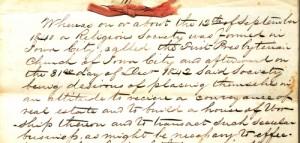 Whereas on or about the 12th of September
1840 a Religious Society was formed in
Iowa City, called the First Presbyterian
Church of Iowa City and afterward on
the 31st day of Dec 1842 Said Society
being desirous of placing themselves in
an attitude to receive a conveyance of
real estate and to build a house of Wor
ship thereon and to transact such secular
business, as might be necessary & effec-